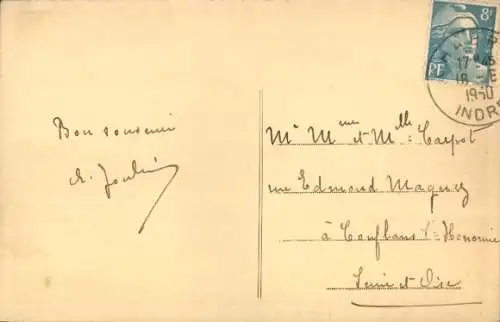 8F
RF
17 45
18
1950
INDR
Bon souvenir
Mr Mme et Mlle Carpot
rue Edmond Magnez
à Conflans Ste Honorine
Seine et Oise